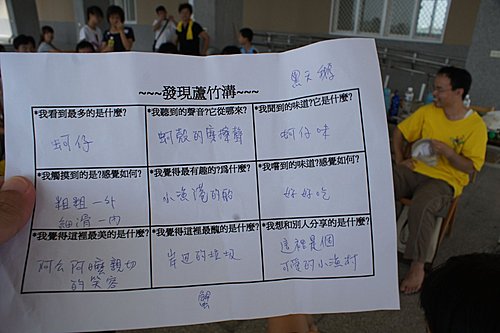 黑天鵝
~~~發現蘆竹溝~~~
*我看到最多的是什麼?
蚵仔
*我聽到的聲音?它從哪來?
蚵殼的摩擦聲
*我聞到的味道?它是什麼?
蚵仔味
*我觸摸到的是?感覺如何?
粗粗—外
細滑—內
*我覺得最有趣的?為什麼?
小漁港的船
*我嚐到的味道?感覺如何?
好好吃
*我覺得這裡最美的是什麼?
阿公阿嬤親切
的笑容
*我覺得這裡最醜的是什麼?
岸邊的垃圾
*我想和別人分享的是什麼?
這裡是個
可愛的小漁村
蟹